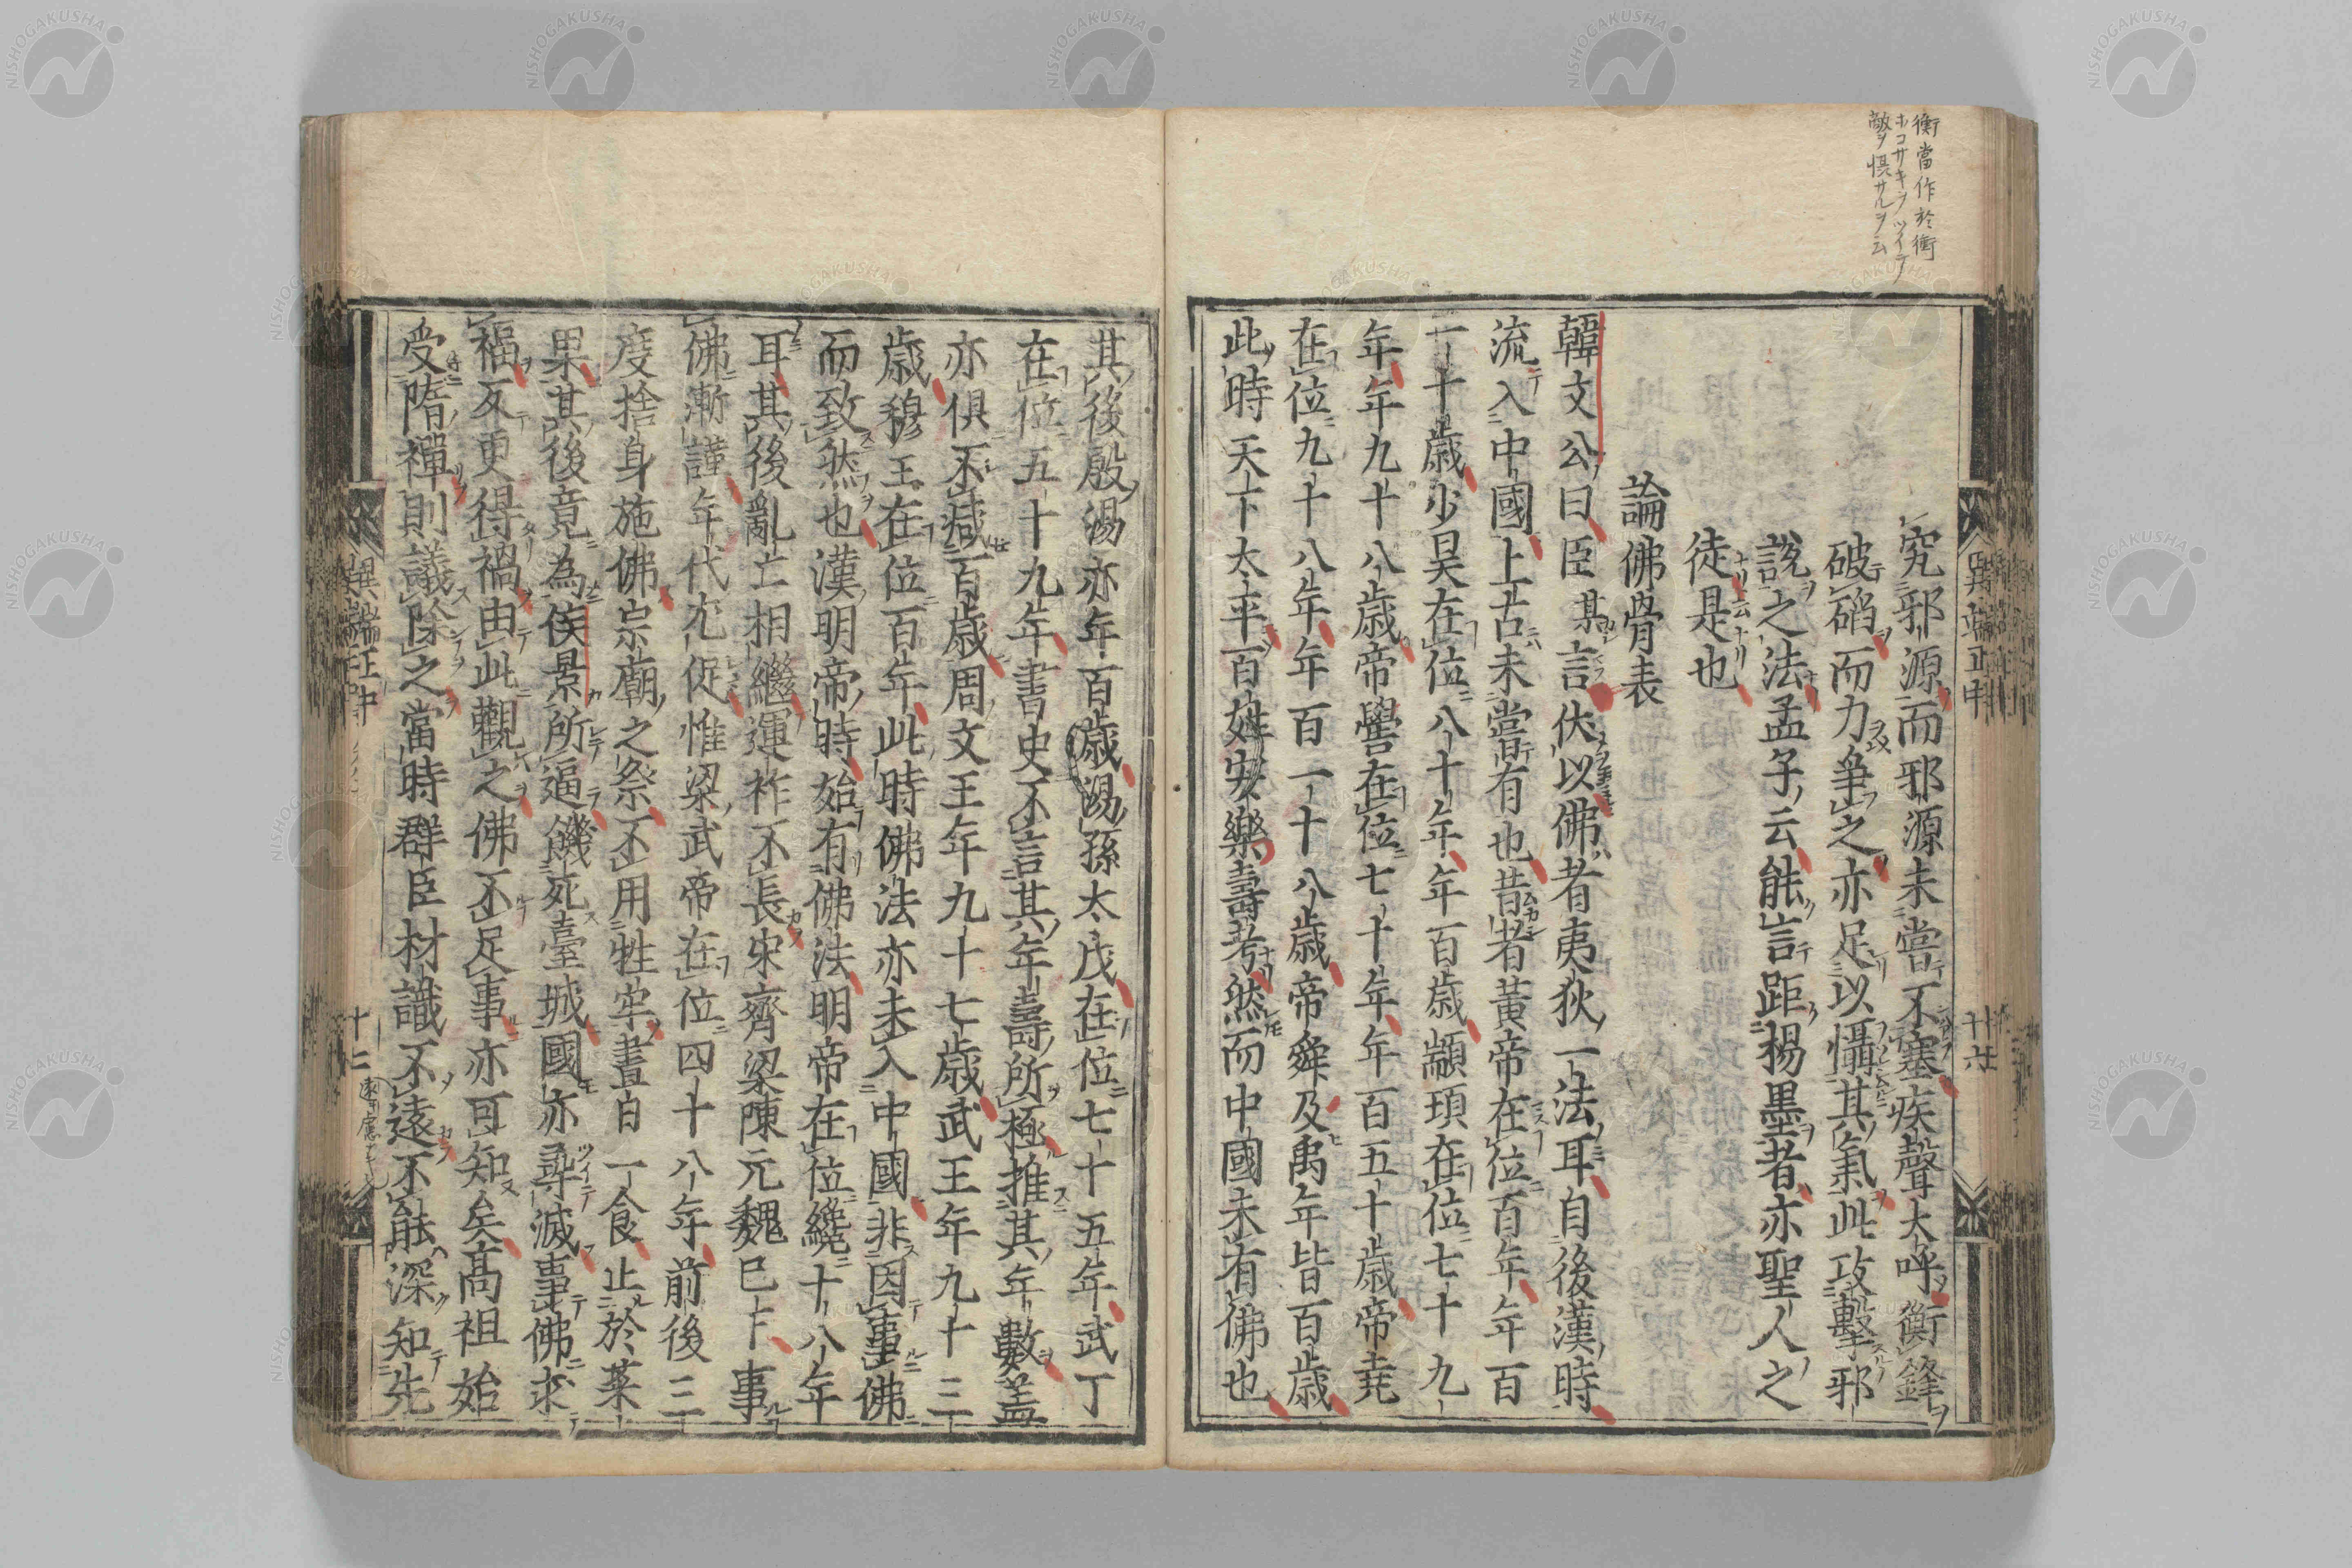 衡當作於衝
ホコサキヲツイテ
敵ヲ惧サルヲ云
究邪源而邪源未嘗不塞疾聲大呼衡鋒
破碯而力爭之亦足以懾其氣此攻擊邪
說之法孟子云能言距楊墨者亦聖人之
徒是也
論佛骨表
韓文公曰臣某言伏以佛者夷狄一法耳自後漢時
流入中國上古未嘗有也昔者黃帝在位百年年百
一十歲少昊在位八十年年百歲顓頊在位七十九
年年九十八歲帝嚳在位七十年年百五十歲帝堯
在位九十八年年百一十八歲帝舜及禹年皆百歲
此時天下太平百姓安樂壽考然而中國未有佛也
異端正中
其後殷湯亦年百歲湯孫太戊在位七十五年武丁
在位五十九年書史不言其年壽所極推其年數蓋
亦俱不減百歲周文王年九十七歲武王年九十三
歲穆王在位百年此時佛法亦未入中國非因事佛
而致然也漢明帝時始有佛法明帝在位纔十八年
耳其後亂亡相繼運祚不長宋齊梁陳元魏已下事
佛漸謹年代尤促惟梁武帝在位四十八年前後三
度捨身施佛宗廟之祭不用牲牢晝日一食止於菜
果其後竟為侯景所逼餓死臺城國亦尋滅事佛求
福反更得禍由此觀之佛不足事亦可知矣高祖始
受隋禪則議除之當時群臣材識不遠不能深知先
異端正中
十二
NISHOGAKUSHA